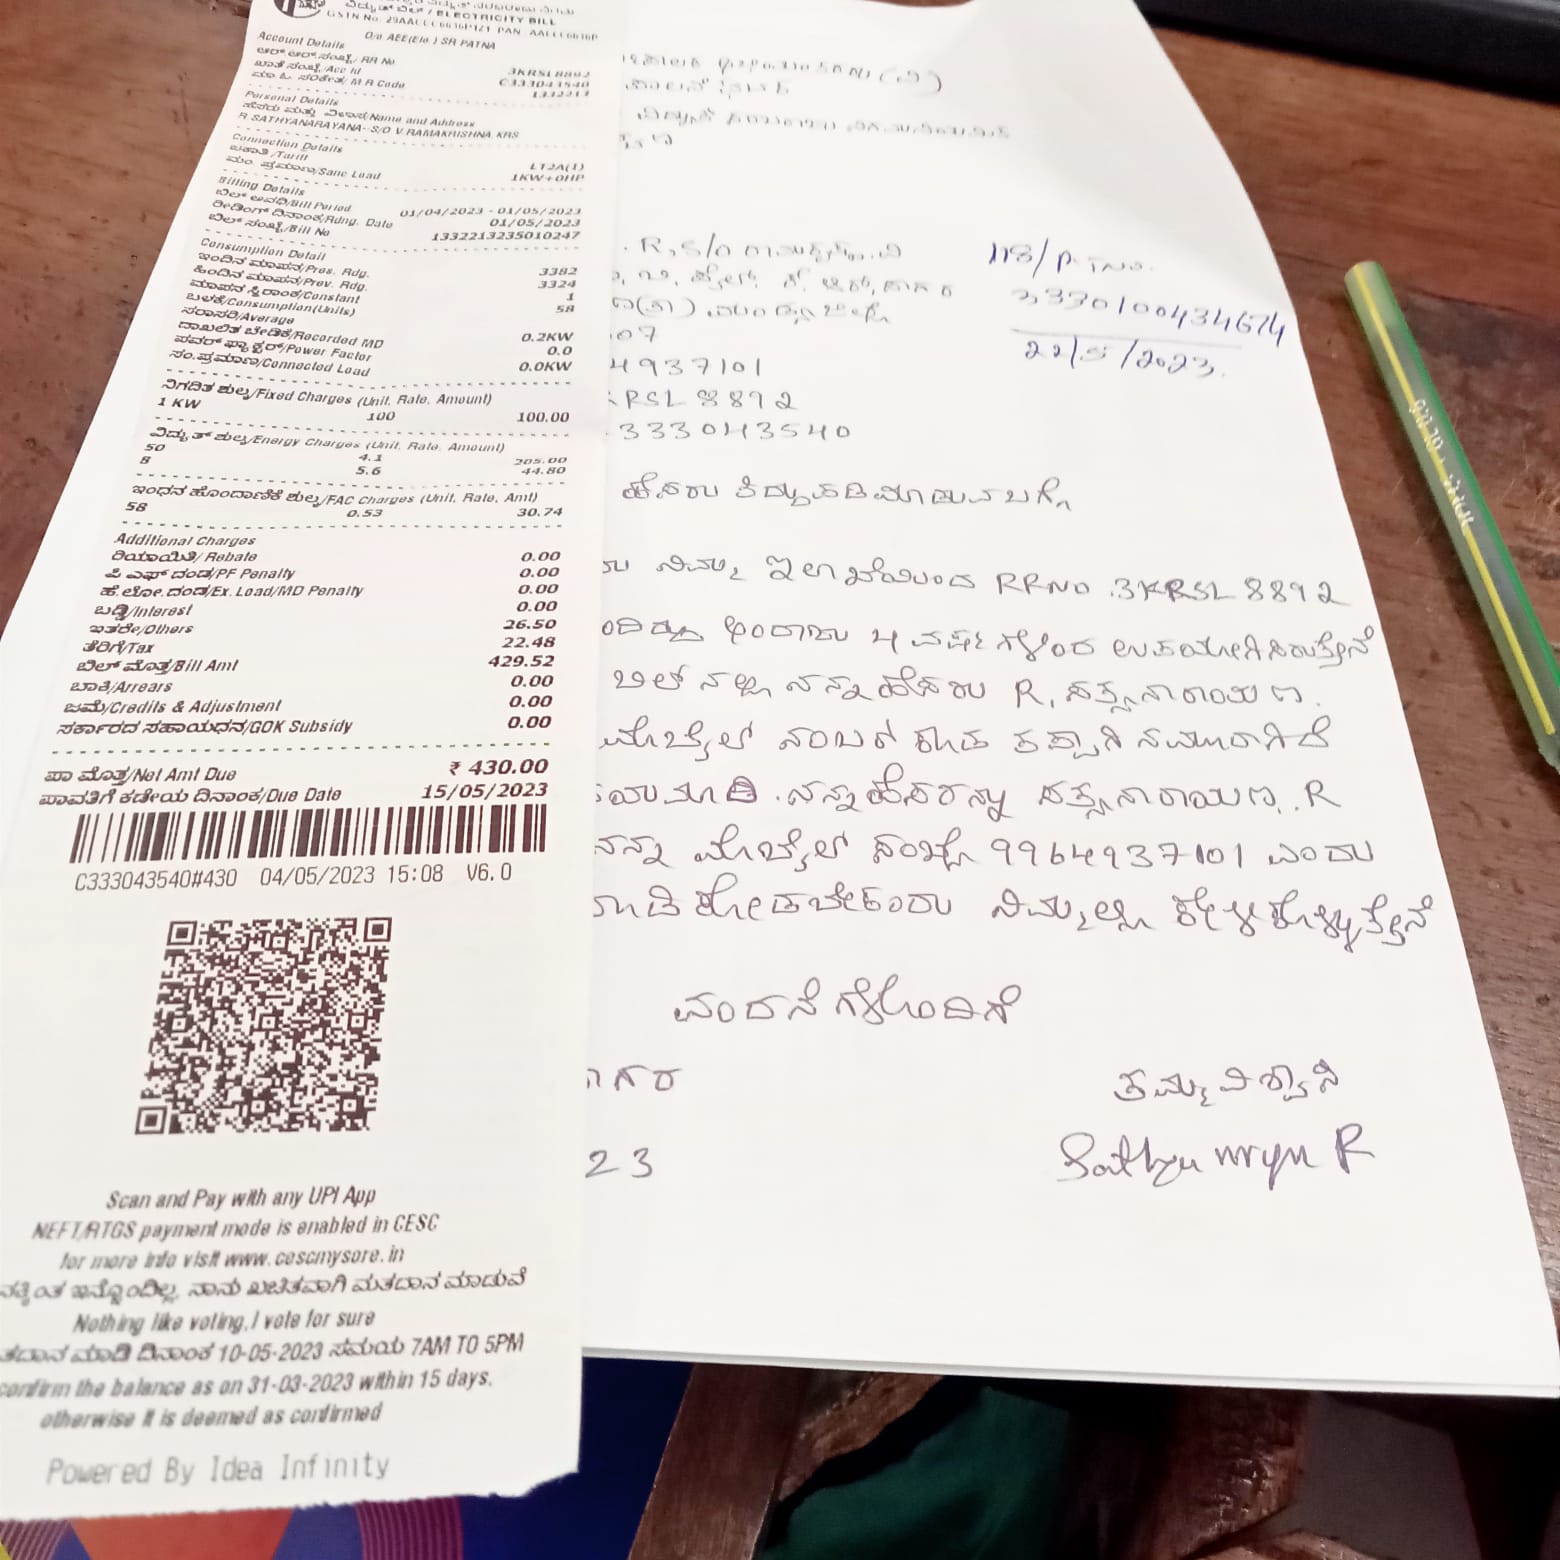 ವಿದ್ಯುತ್ ಬಿಲ್ / ELECTRICITY BILL
GSTN No. 29AACCC6636P1Z1 PAN AACCC6636P
O/o AEE(Ele.) SR PATNA
Account Details
ಆರ್.ಆರ್.ಸಂಖ್ಯೆ/ RR No 3KRSL8892
ಖಾತೆ ಸಂಖ್ಯೆ/Acc Id C333043540
ಮಾ.ಓ. ಸಂಕೇತ/ M R Code 1332213
Personal Details
ಹೆಸರು ಮತ್ತು ವಿಳಾಸ/Name and Address
R SATHYANARAYANA--S/O V.RAMAKRISHNA, KRS
Connection Details
ಜಕಾತಿ /Tariff LT2A(1)
ಮಂ. ಪ್ರಮಾಣ/Sanc Load 1KW+0HP
Billing Details
ಬಿಲ್ ಅವಧಿ/Bill Period 01/04/2023 - 01/05/2023
ರೀಡಿಂಗ್ ದಿನಾಂಕ/Rdng. Date 01/05/2023
ಬಿಲ್ ಸಂಖ್ಯೆ/Bill No 1332213235010247
Consumption Detail
ಇಂದಿನ ಮಾಪನ/Pres. Rdg. 3382
ಹಿಂದಿನ ಮಾಪನ/Prev. Rdg. 3324
ಮಾಪನ ಸ್ಥಿರಾಂಕ/Constant 1
ಬಳಕೆ/Consumption(Units) 58
ಸರಾಸರಿ/Average
ದಾಖಲಿತ ಬೇಡಿಕೆ/Recorded MD 0.2KW
ಪವರ್ ಫ್ಯಾಕ್ಟರ್/Power Factor 0.0
ಸಂ.ಪ್ರಮಾಣ/Connected Load 0.0KW
ನಿಗದಿತ ಶುಲ್ಕ/Fixed Charges (Unit, Rate, Amount)
1 KW 100 100.00
ವಿದ್ಯುತ್ ಶುಲ್ಕ/Energy Charges (Unit, Rate, Amount)
50 4.1 205.00
8 5.6 44.80
ಇಂಧನ ಹೊಂದಾಣಿಕೆ ಶುಲ್ಕ/FAC Charges (Unit, Rate, Amt)
58 0.53 30.74
Additional Charges
ರಿಯಾಯಿತಿ/ Rebate 0.00
ಪಿ ಎಫ್ ದಂಡ/PF Penalty 0.00
ಹೆ.ಲೋ.ದಂಡ/Ex. Load/MD Penalty 0.00
ಬಡ್ಡಿ/Interest 0.00
ಇತರೇ/Others 26.50
ತೆರಿಗೆ/Tax 22.48
ಬಿಲ್ ಮೊತ್ತ/Bill Amt 429.52
ಬಾಕಿ/Arrears 0.00
ಜಮೆ/Credits & Adjustment 0.00
ಸರ್ಕಾರದ ಸಹಾಯಧನ/GOK Subsidy 0.00
ಪಾ ಮೊತ್ತ/Net Amt Due ₹ 430.00
ಪಾವತಿಗೆ ಕಡೇಯ ದಿನಾಂಕ/Due Date 15/05/2023
C333043540#430 04/05/2023 15:08 V6.0
Scan and Pay with any UPI App
NEFT/RTGS payment mode is enabled in CESC
for more info visit www.cescmysore.in
ಇನ್ನೊಂದಿಲ್ಲ, ನಾನು ಖಚಿತವಾಗಿ ಮತದಾನ ಮಾಡುವೆ
Nothing like voting,I vote for sure
ಮಾಡಿ ದಿನಾಂಕ 10-05-2023 ಸಮಯ 7AM TO 5PM
confirm the balance as on 31-03-2023 within 15 days,
otherwise it is deemed as confirmed
Powered By Idea Infinity
R, S/O ರಾಮಕೃಷ್ಣ.ವಿ
07
4937101
KRSL 8892
333043540
ಹೆಸರು ತಿದ್ದುಪಡಿ ಮಾಡುವ ಬಗ್ಗೆ
3330100434674
22/5/2023.
ನಿಮ್ಮ ಇಲಾಖೆಯಿಂದ RRNO .3KRSL 8892
4 ವರ್ಷಗಳಿಂದ ಉಪಯೋಗಿಸಿರುತ್ತೇನೆ
ಬಿಲ್ ನಲ್ಲಿ ನನ್ನ ಹೆಸರು R, ಸತ್ಯನಾರಾಯಣ.
ಮೊಬೈಲ್ ನಂಬರ್ ಕೂಡ ತಪ್ಪಾಗಿ ನಮೂದಾಗಿದೆ
ನನ್ನ ಹೆಸರನ್ನು ಸತ್ಯನಾರಾಯಣ. R
ನನ್ನ ಮೊಬೈಲ್ ಸಂಖ್ಯೆ 9964937101 ಎಂದು
ಮಾಡಿಕೊಡಬೇಕೆಂದು ನಿಮ್ಮಲ್ಲಿ ಕೇಳಿಕೊಳ್ಳುತ್ತೇನೆ
ವಂದನೆಗಳೊಂದಿಗೆ
ಗರ
ತಮ್ಮ ವಿಶ್ವಾಸಿ
23